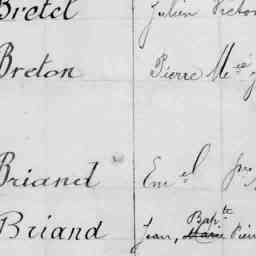 Bretel Julien Victor
Breton Pierre Mee
Briand Emel
Briand Jean, Bapte Marie Pierre